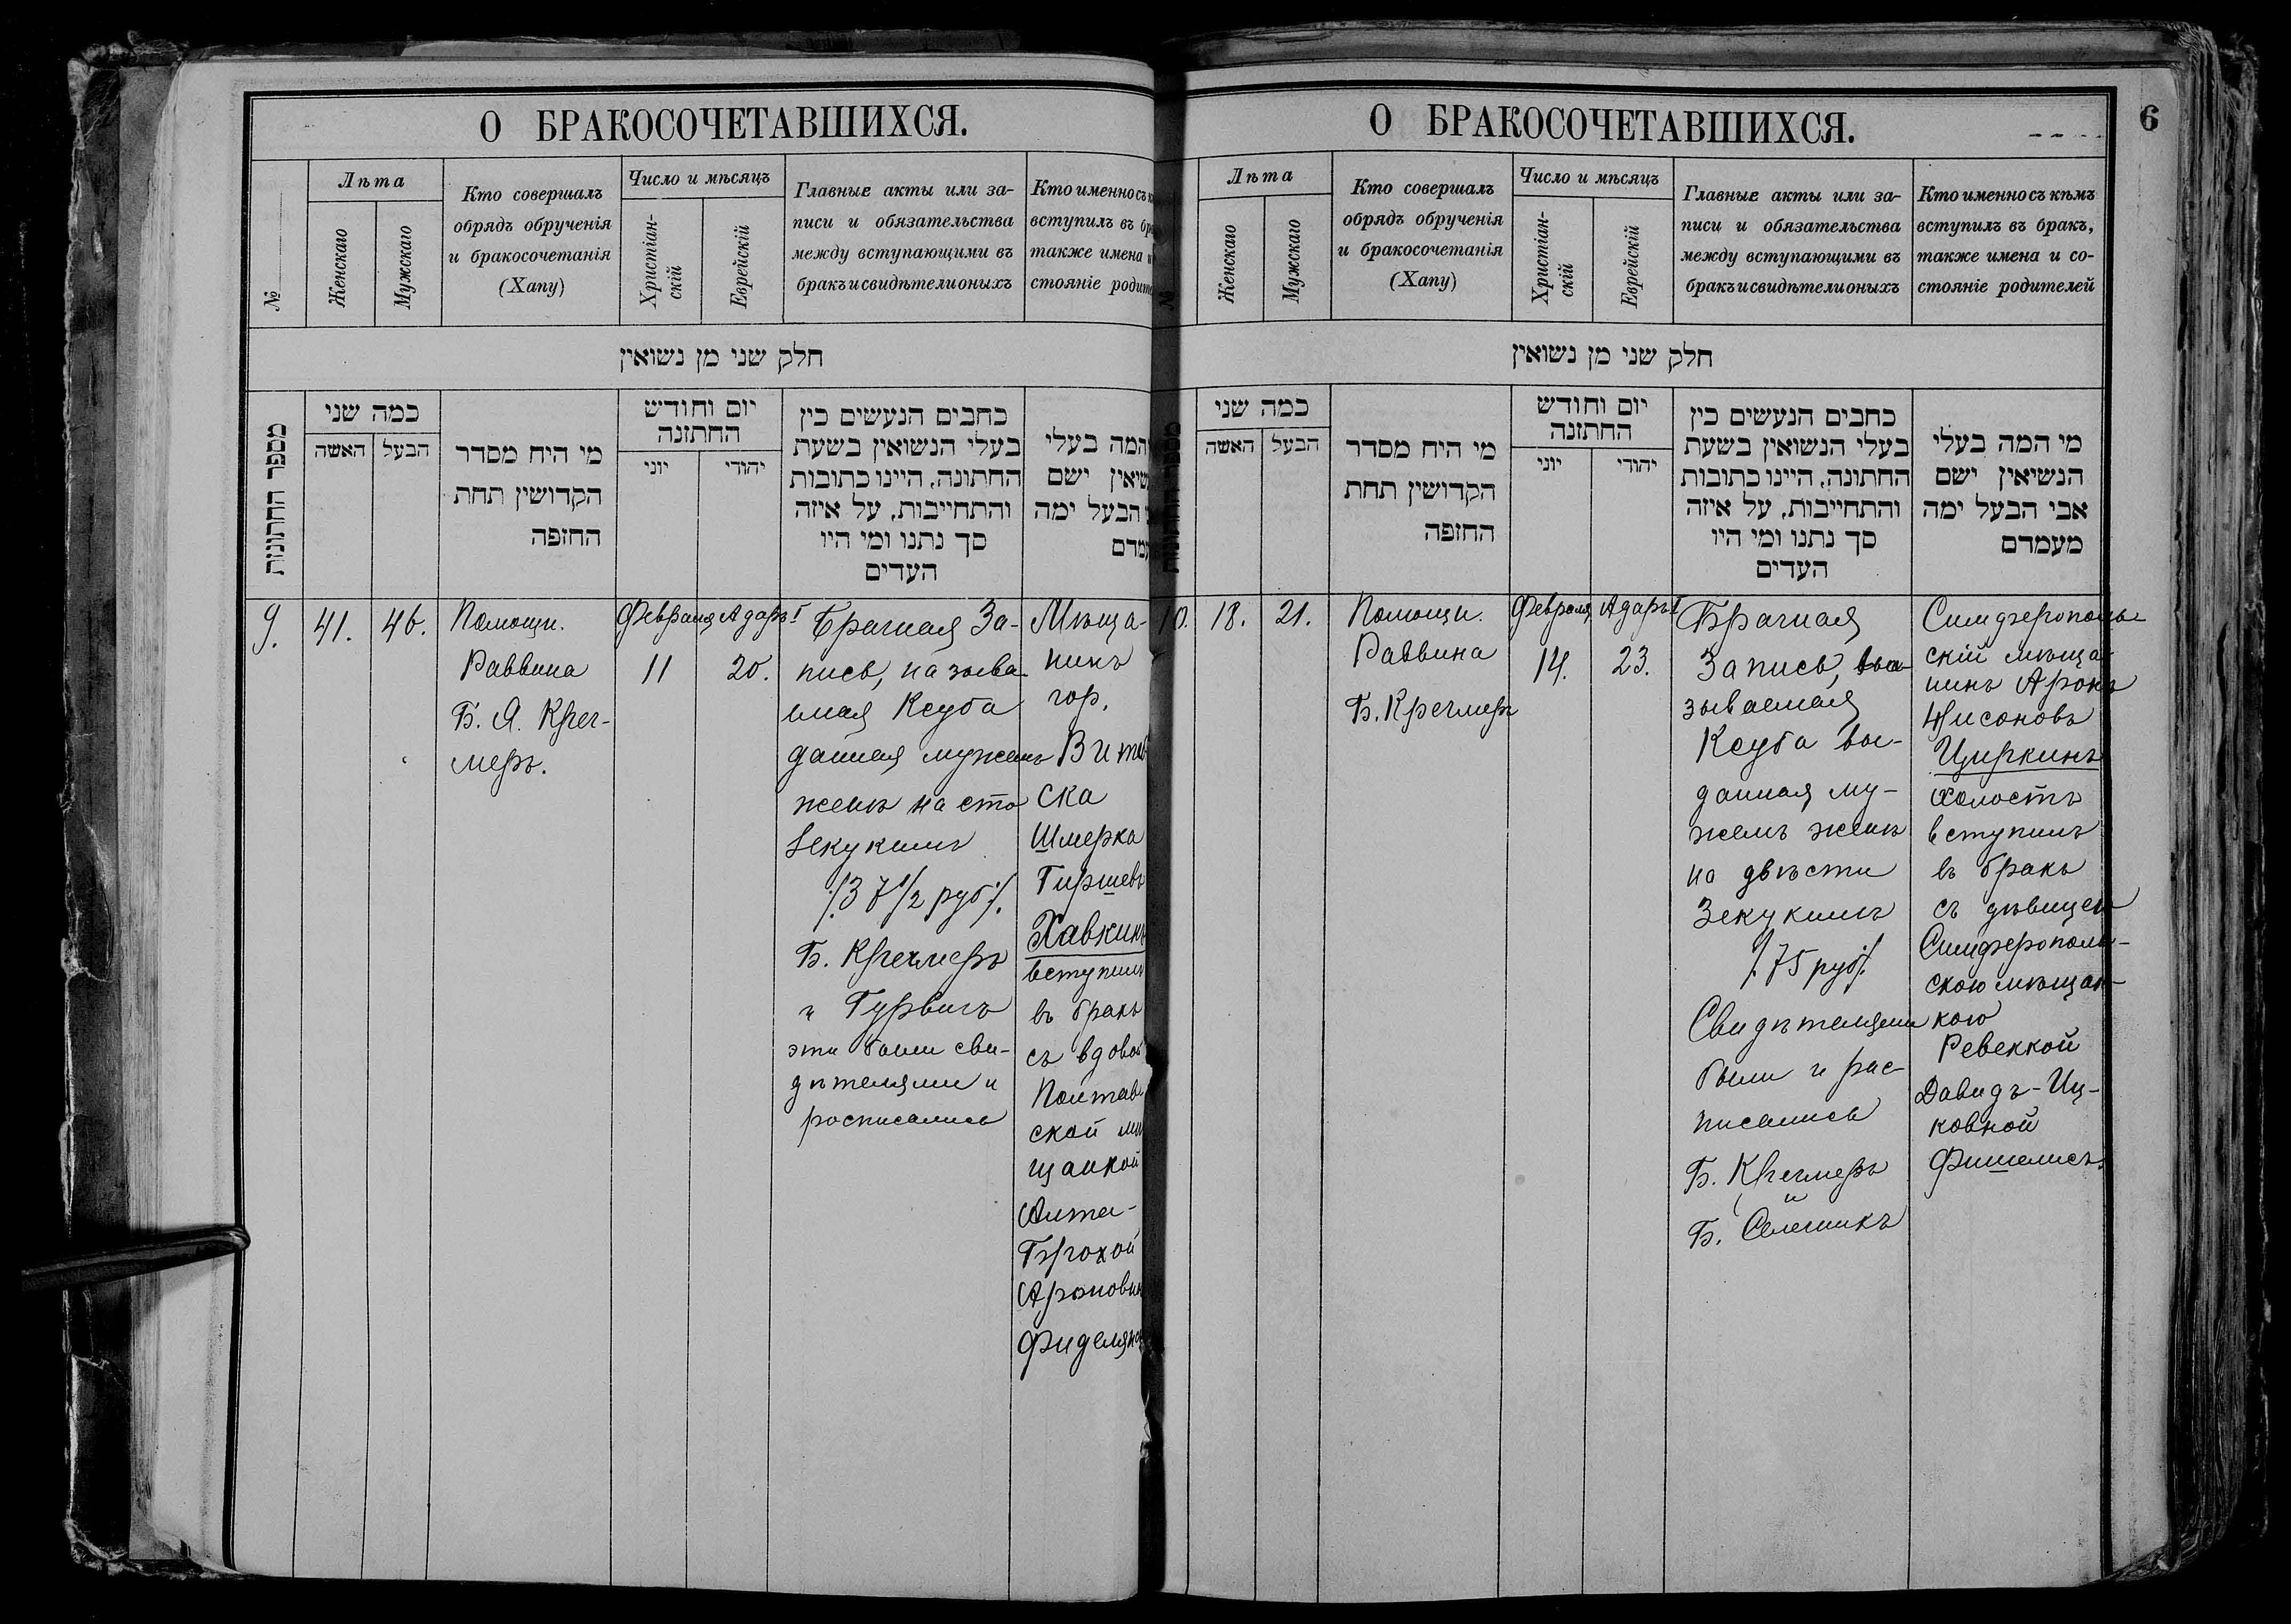 О БРАКОСОЧЕТАВШИХСЯ.
№
Лѣта
Женскаго
Мужскаго
Кто совершалъ
обрядъ обрученія
и бракосочетанія
(Хапу)
Число и мѣсяцъ
Христіан-
скій
Еврейскій
Главные акты или за-
писи и обязательства
между вступающими въ
бракъ и свидѣтели оныхъ
Кто именно съ
вступилъ въ
также имена
стояніе
חלק שני מן נשואין
מספר החתונות
כמה שני
האשה
הבעל
מי היח מסדר
הקדושין תחת
החופה
יום וחודש
החתונה
יוני
יהודי
כחבים הנעשים כין
בעלי הנשואין בשעת
החתונה, היינו כתובות
והתחייבות, על איזה
סך נתנו ומי היו
העדים
המה בעלי
ישם
הבעל ימה
9.
41.
46.
Помощн.
Раввина
Б. Я. Креч-
меръ.
Февраля
11
Адаръ I
20.
Брачная За-
пись, называ
емая Ксуба
данная мужемъ
женѣ на сто
Зекукимъ
/:37 1/2 руб:/.
Б. Кречмеръ
и Гурвичъ
эти были сви-
дѣтелями и
росписались
Мѣща-
нинъ
гор.
Витеб
ска
Шмерка
Гиршевъ
Хавкинъ
вступилъ
въ бракъ
съ вдовой
Полтав
ской мѣ
щанкой
Алтеи-
Брохой
Ароновн
Фиделя
О БРАКОСОЧЕТАВШИХСЯ.
6
Лѣта
Женскаго
Мужскаго
Кто совершалъ
обрядъ обрученія
и бракосочетанія
(Хапу)
Число и мѣсяцъ
Христіан-
скій
Еврейскій
Главные акты или за-
писи и обязательства
между вступающими въ
бракъ и свидѣтели оныхъ
Кто именно съ кѣмъ
вступилъ въ бракъ,
также имена и со-
стояніе родителей
חלק שני מן נשואין
כמה שני
האשה
הבעל
מי היח מסדר
הקדושין תחת
החופה
יום וחודש
החתונה
יוני
יהודי
כחבים הנעשים כין
בעלי הנשואין בשעת
החתונה, היינו כתובות
והתחייבות, על איזה
סך נתנו ומי היו
העדים
מי המה בעלי
הנשיאין ישם
אבי הבעל ימה
מעמדם
10.
18.
21.
Помощн.
Раввина
Б. Кречмеръ
Февраля
14.
Адаръ I
23.
Брачная
Запись, на-
зываемая
Ксуба вы-
данная му-
жемъ женѣ
на двѣсти
Зекукимъ
/:75 руб:/
Свидѣтелями
были и рас-
писались
Б. Кречмеръ
и
Б.
Симферополь-
скій мѣща-
нинъ Аронъ
Нисоновъ
Циркинъ
холостъ
вступилъ
въ бракъ
съ дѣвицей
Симферополь-
скою мѣщан-
кою
Ревеккой
Давидъ-Иц-
ковной
Фишелисъ.